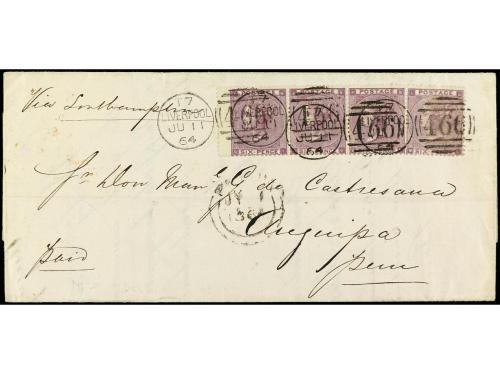 POSTAGE POSTAGE POSTAGE
17 LIVERPOOL JU 17 64
466
SIX PENCE SIX PENCE
Via Southampton
Sr Don Man.l G de Castresana
JY 1
1864
Arequipa
Paid
Peru